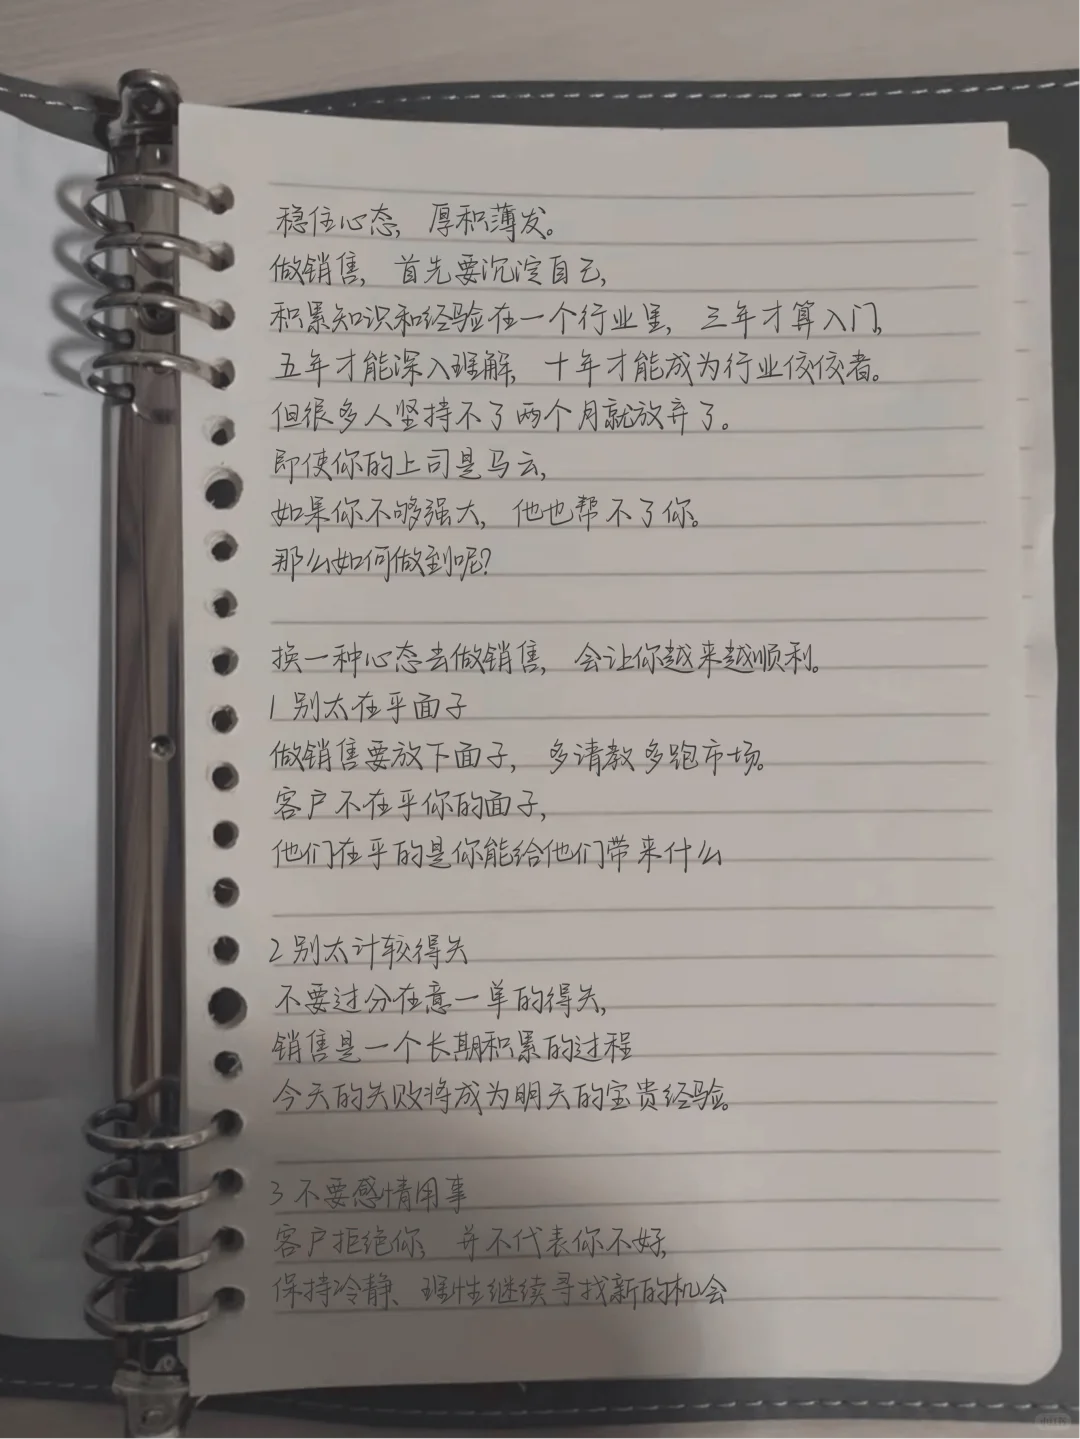 稳住心态，厚积薄发。
做销售，首先要沉淀自己，
积累知识和经验在一个行业里，三年才算入门，
五年才能深入理解，十年才能成为行业佼佼者。
但很多人坚持不了两个月就放弃了。
即使你的上司是马云，
如果你不够强大，他也帮不了你。
那么如何做到呢？
换一种心态去做销售，会让你越来越顺利。
1 别太在乎面子
做销售要放下面子，多请教多跑市场。
客户不在乎你的面子，
他们在乎的是你能给他们带来什么
2 别太计较得失
不要过分在意一单的得失，
销售是一个长期积累的过程
今天的失败将成为明天的宝贵经验。
3 不要感情用事
客户拒绝你，并不代表你不好，
保持冷静、理性继续寻找新的机会
小红书